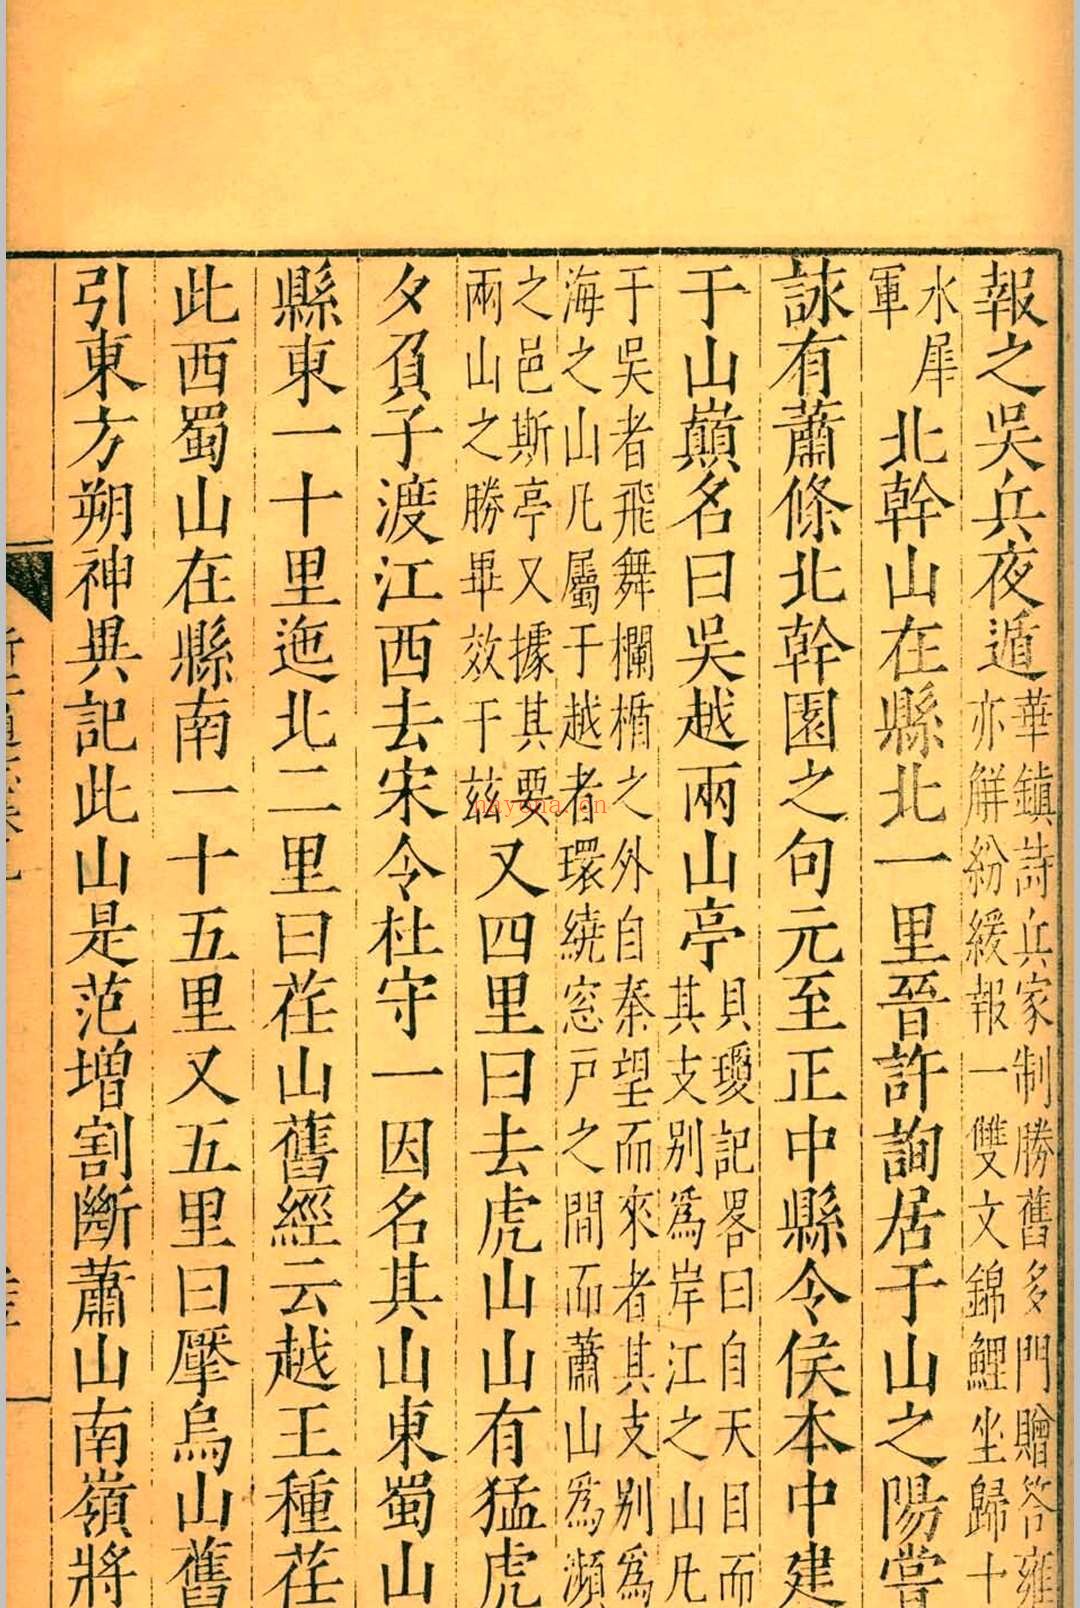 報之吳兵夜遁華鎮詩兵家制勝舊多門贈答雍
亦解紛緩報一雙文錦鯉坐歸十
水犀
軍
北幹山在縣北一里晉許詢居于山之陽嘗
詠有蕭條北幹園之句元至正中縣令侯本中建
于山巔名曰吳越兩山亭貝瓊記畧曰自天目而
其支別爲岸江之山凡
于吳者飛舞欄楯之外自秦望而來者其支別爲
海之山凡屬于越者環繞窓戸之間而蕭山爲瀕
之邑斯亭又據其要
兩山之勝畢效于兹
又四里曰去虎山山有猛虎
夕負子渡江西去宋令杜守一因名其山東蜀山
縣東一十里迤北二里曰茬山舊經云越王種茬
此西蜀山在縣南一十五里又五里曰犀烏山舊
引東方朔神異記此山是范增割斷蕭山南嶺將